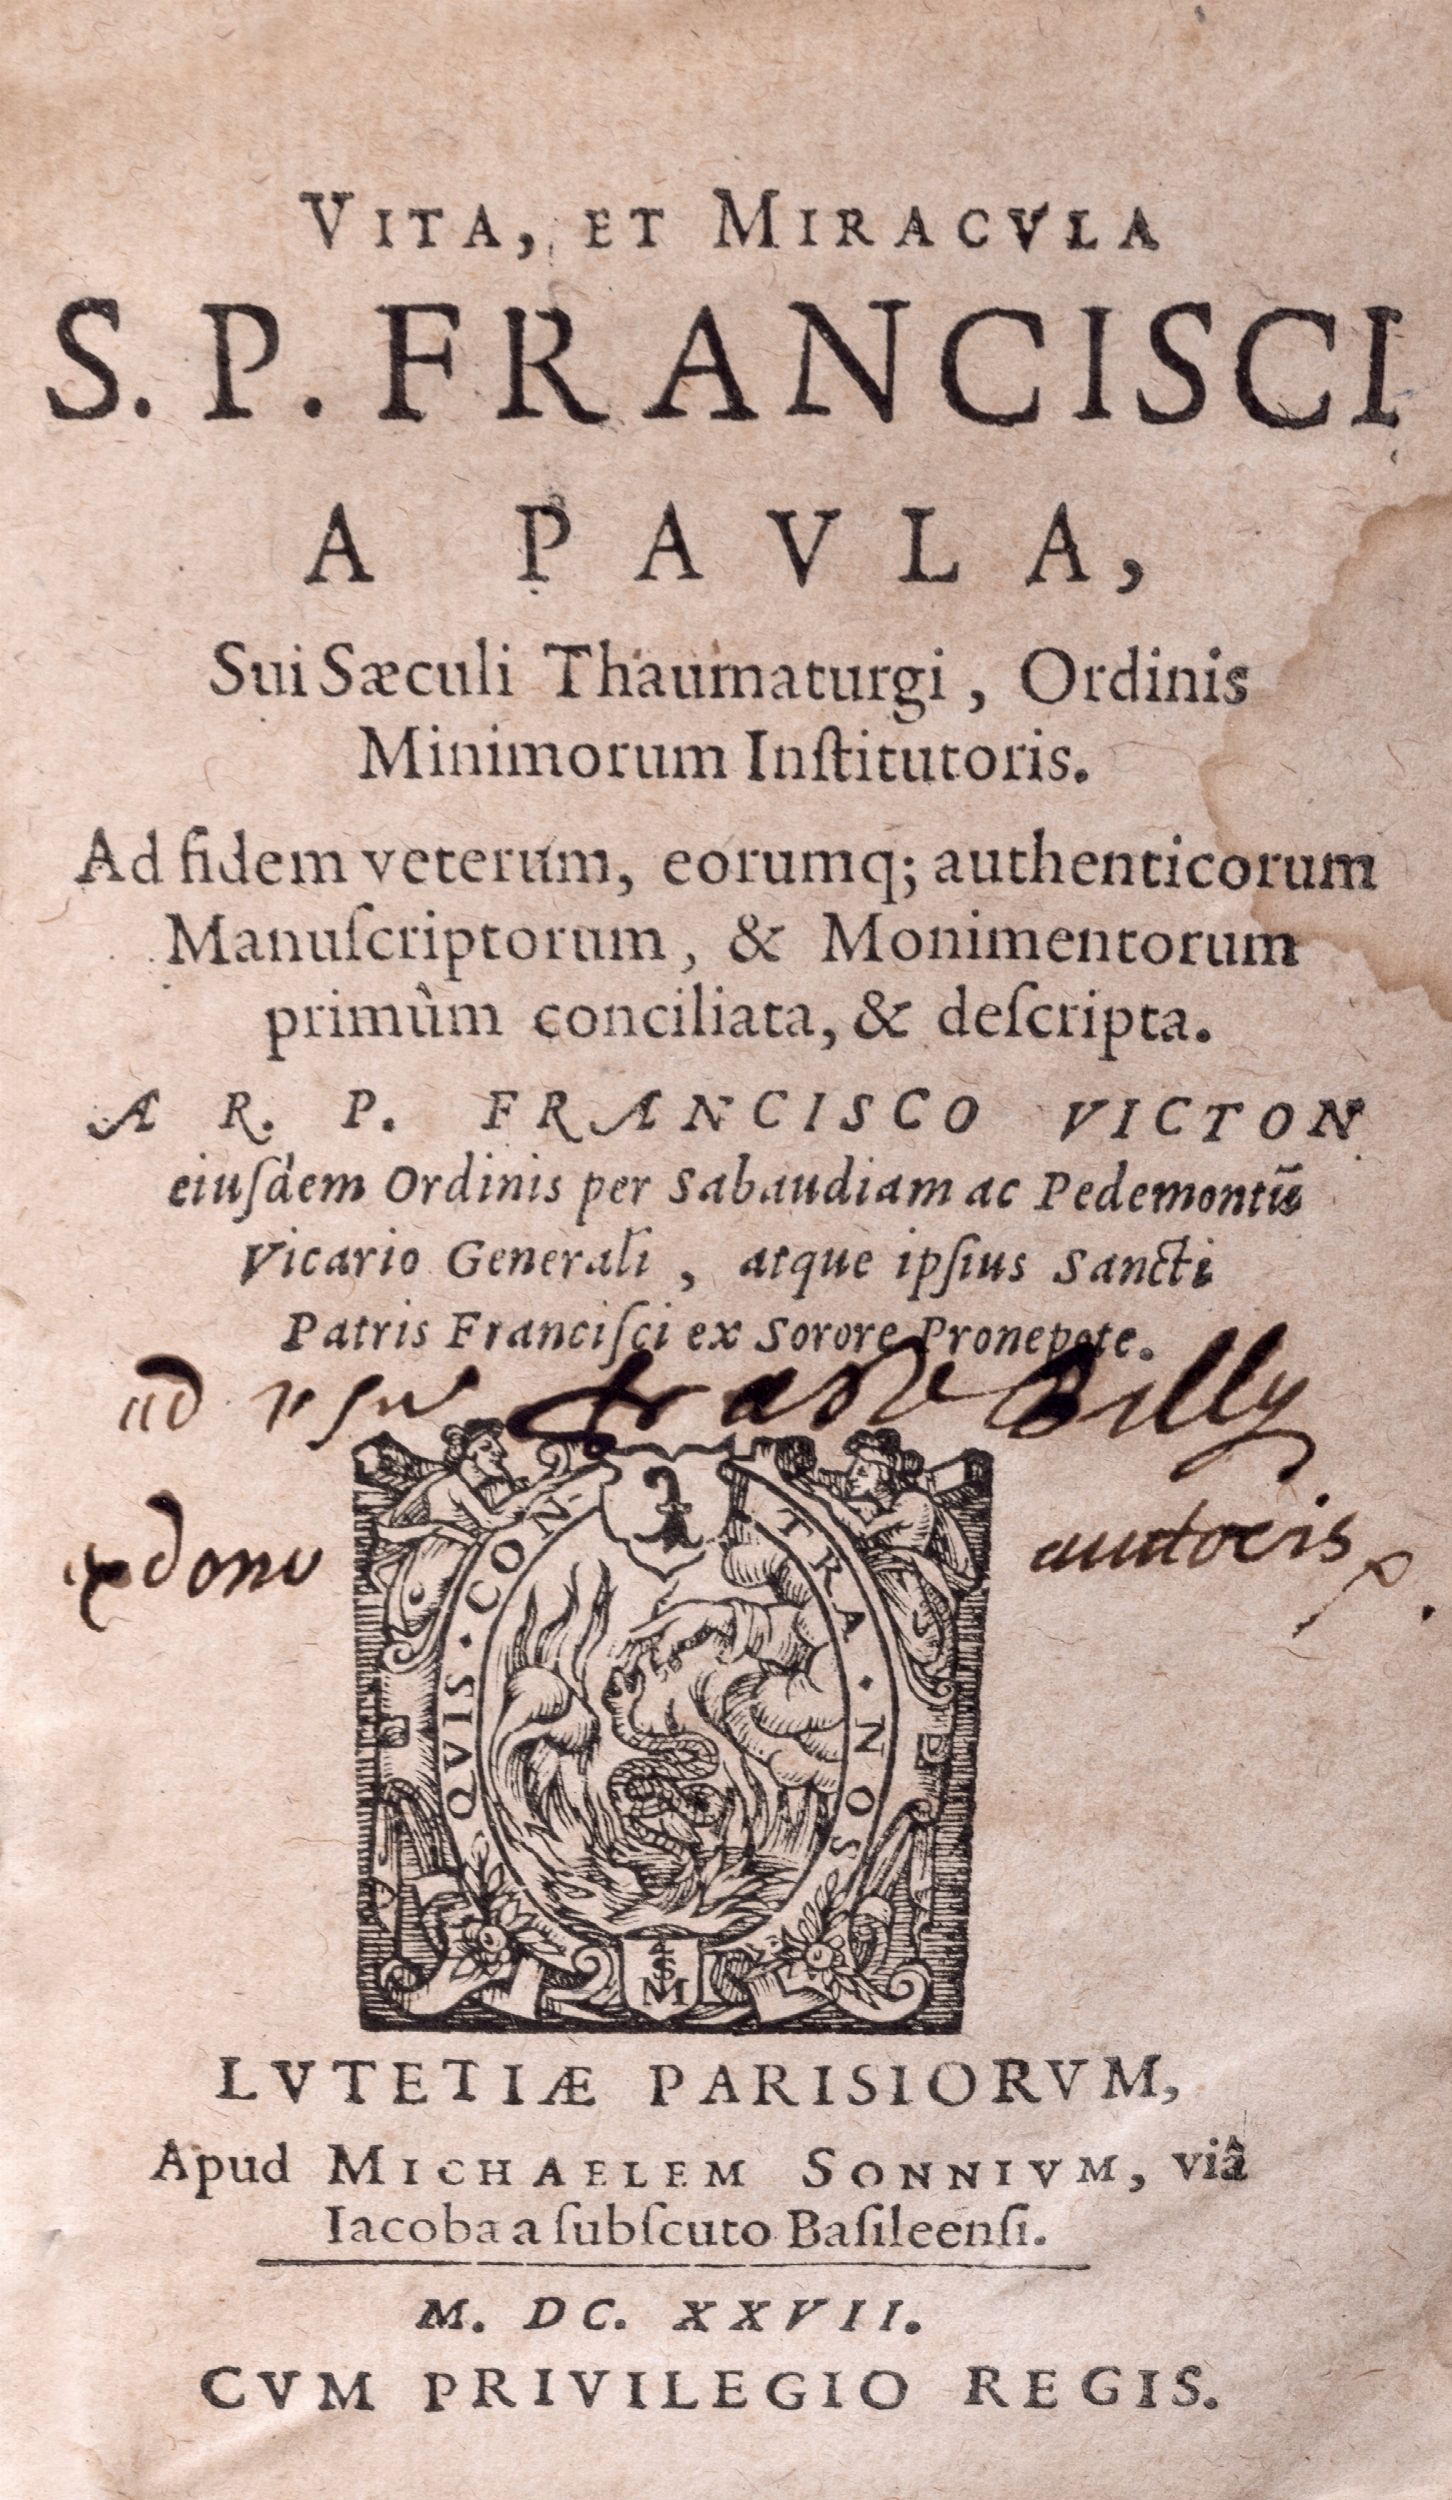 VITA, ET MIRACVLA
S. P. FRANCISCI
A PAVLA,
Sui Sæculi Thaumaturgi, Ordinis
Minimorum Inſtitutoris.
Ad fidem veterum, eorumq; authenticorum
Manuſcriptorum, & Monimentorum
primùm conciliata, & deſcripta.
A R. P. FRANCISCO VICTON
eiuſdem Ordinis per Sabaudiam ac Pedemontiũ
Vicario Generali, atque ipſius Sancti
Patris Franciſci ex Sorore Pronepote.
ad vsu de Billy
ex dono autoris
QVIS · CON-TRA · NOS
SM
LVTETIÆ PARISIORVM,
Apud MICHAELEM SONNIVM, viâ
Iacobaa ſubſcuto Baſileenſi.
M. DC. XXVII.
CVM PRIVILEGIO REGIS.